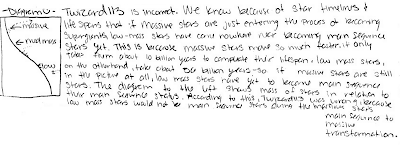 Diagram:
massive
med.mass
low
Twizard113 is incorrect. We know because of star timelines &
life spans that if massive stars are just entering the process of becoming
supergiants, low-mass stars have come nowhere near becoming main sequence
stars yet. This is because massive stars move so much faster, it only
takes them about 10 billion years to complete their lifespan. low mass stars,
on the other hand, take about 50 billion years - so if massive stars are still
in the picture at all, low mass stars have yet to become main sequence
stars. The diagram to the left shows mass of stars in relation to
their main sequence status. According to this, Twizard113 was wrong because
low mass stars would not be main sequence stars during the massive stars
main sequence to
massive
transformation.